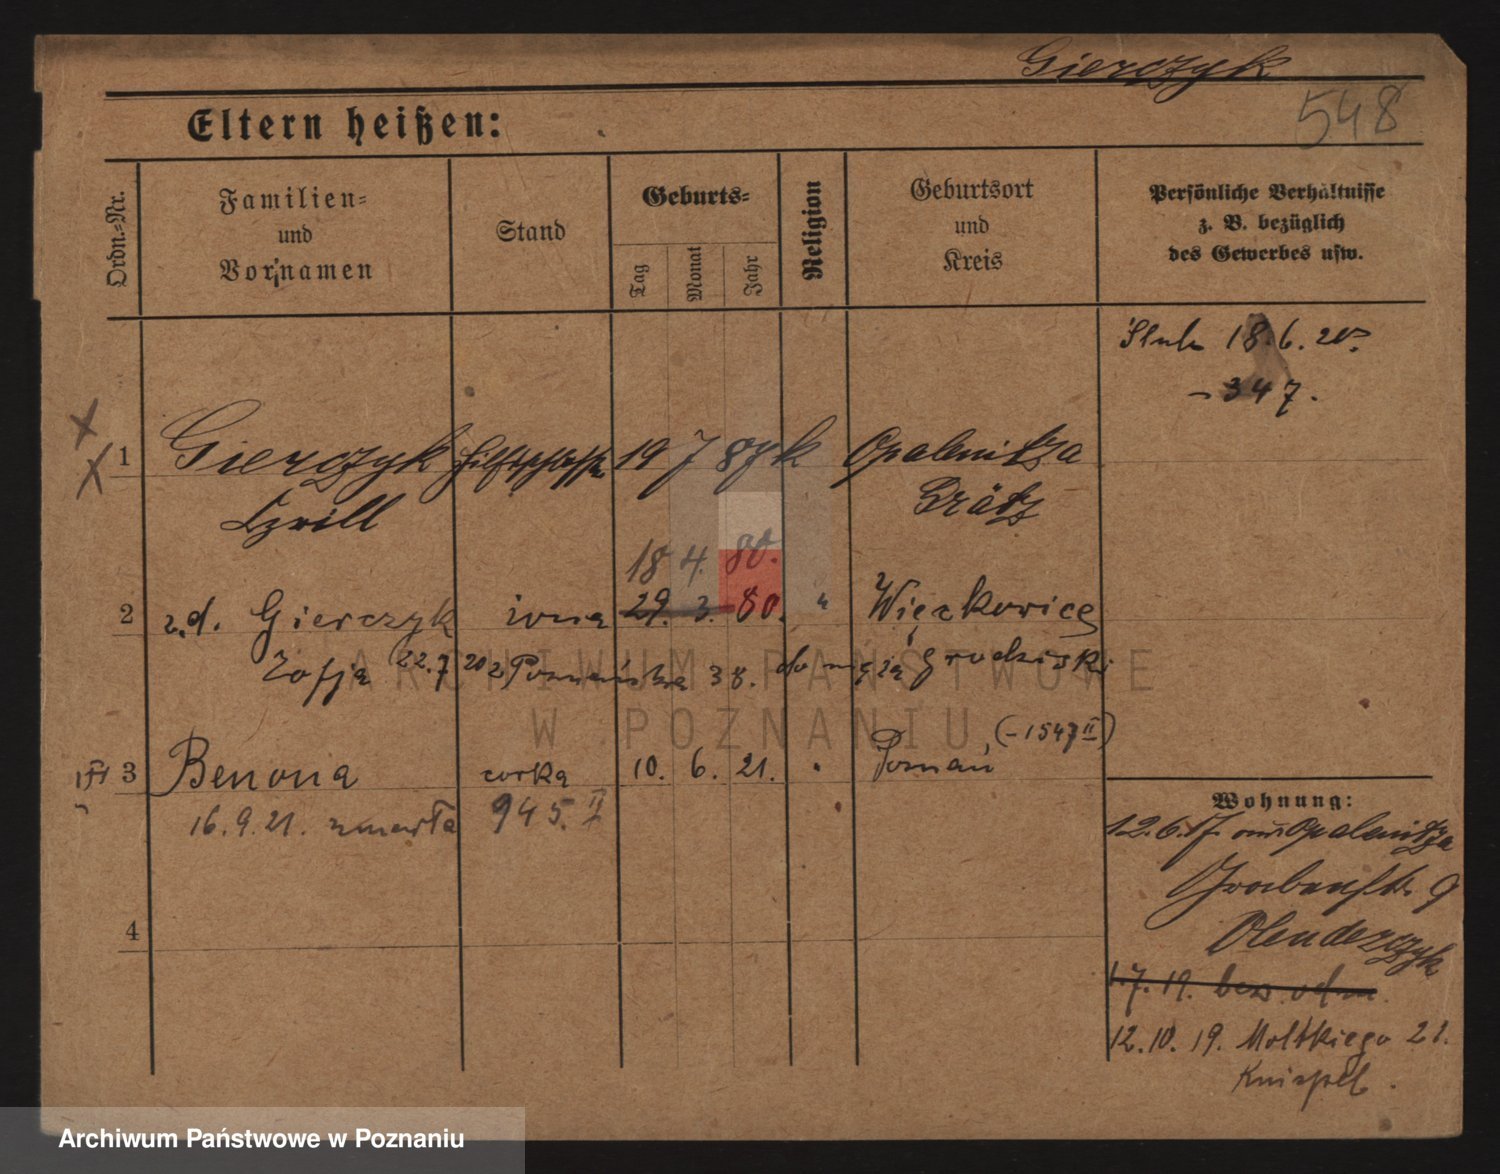 Gierczyk
548
Eltern heißen:
Ordn.-Nr.
Familien-
und
Vornamen
Stand
Geburts-
Tag
Monat
Jahr
Religion
Geburtsort
und
Kreis
Persönliche Verhältnisse
z. B. bezüglich
des Gewerbes usw.
Ślub 18.6.20
- 347.
1 Gierczyk 19 7 87 k Opalenitza
Cyrill Grätz
18 4. 80.
2 z.d. Gierczyk żona 29. 3. 80. " Więckowice
Zofja 22.7 20 z Poznańska 38. do męża Grodziski
(-1547 II)
3 Benona córka 10. 6. 21. " Poznań
16.9.21. zmarła 945. II
4
Wohnung:
12.6.17. aus Opalenitza
Grabenstr. 9
Olenderczyk
1.7.19. bez odm.
12.10.19. Moltkiego 21.
Knispel.
ARCHIWUM PAŃSTWOWE
W POZNANIU
Archiwum Państwowe w Poznaniu